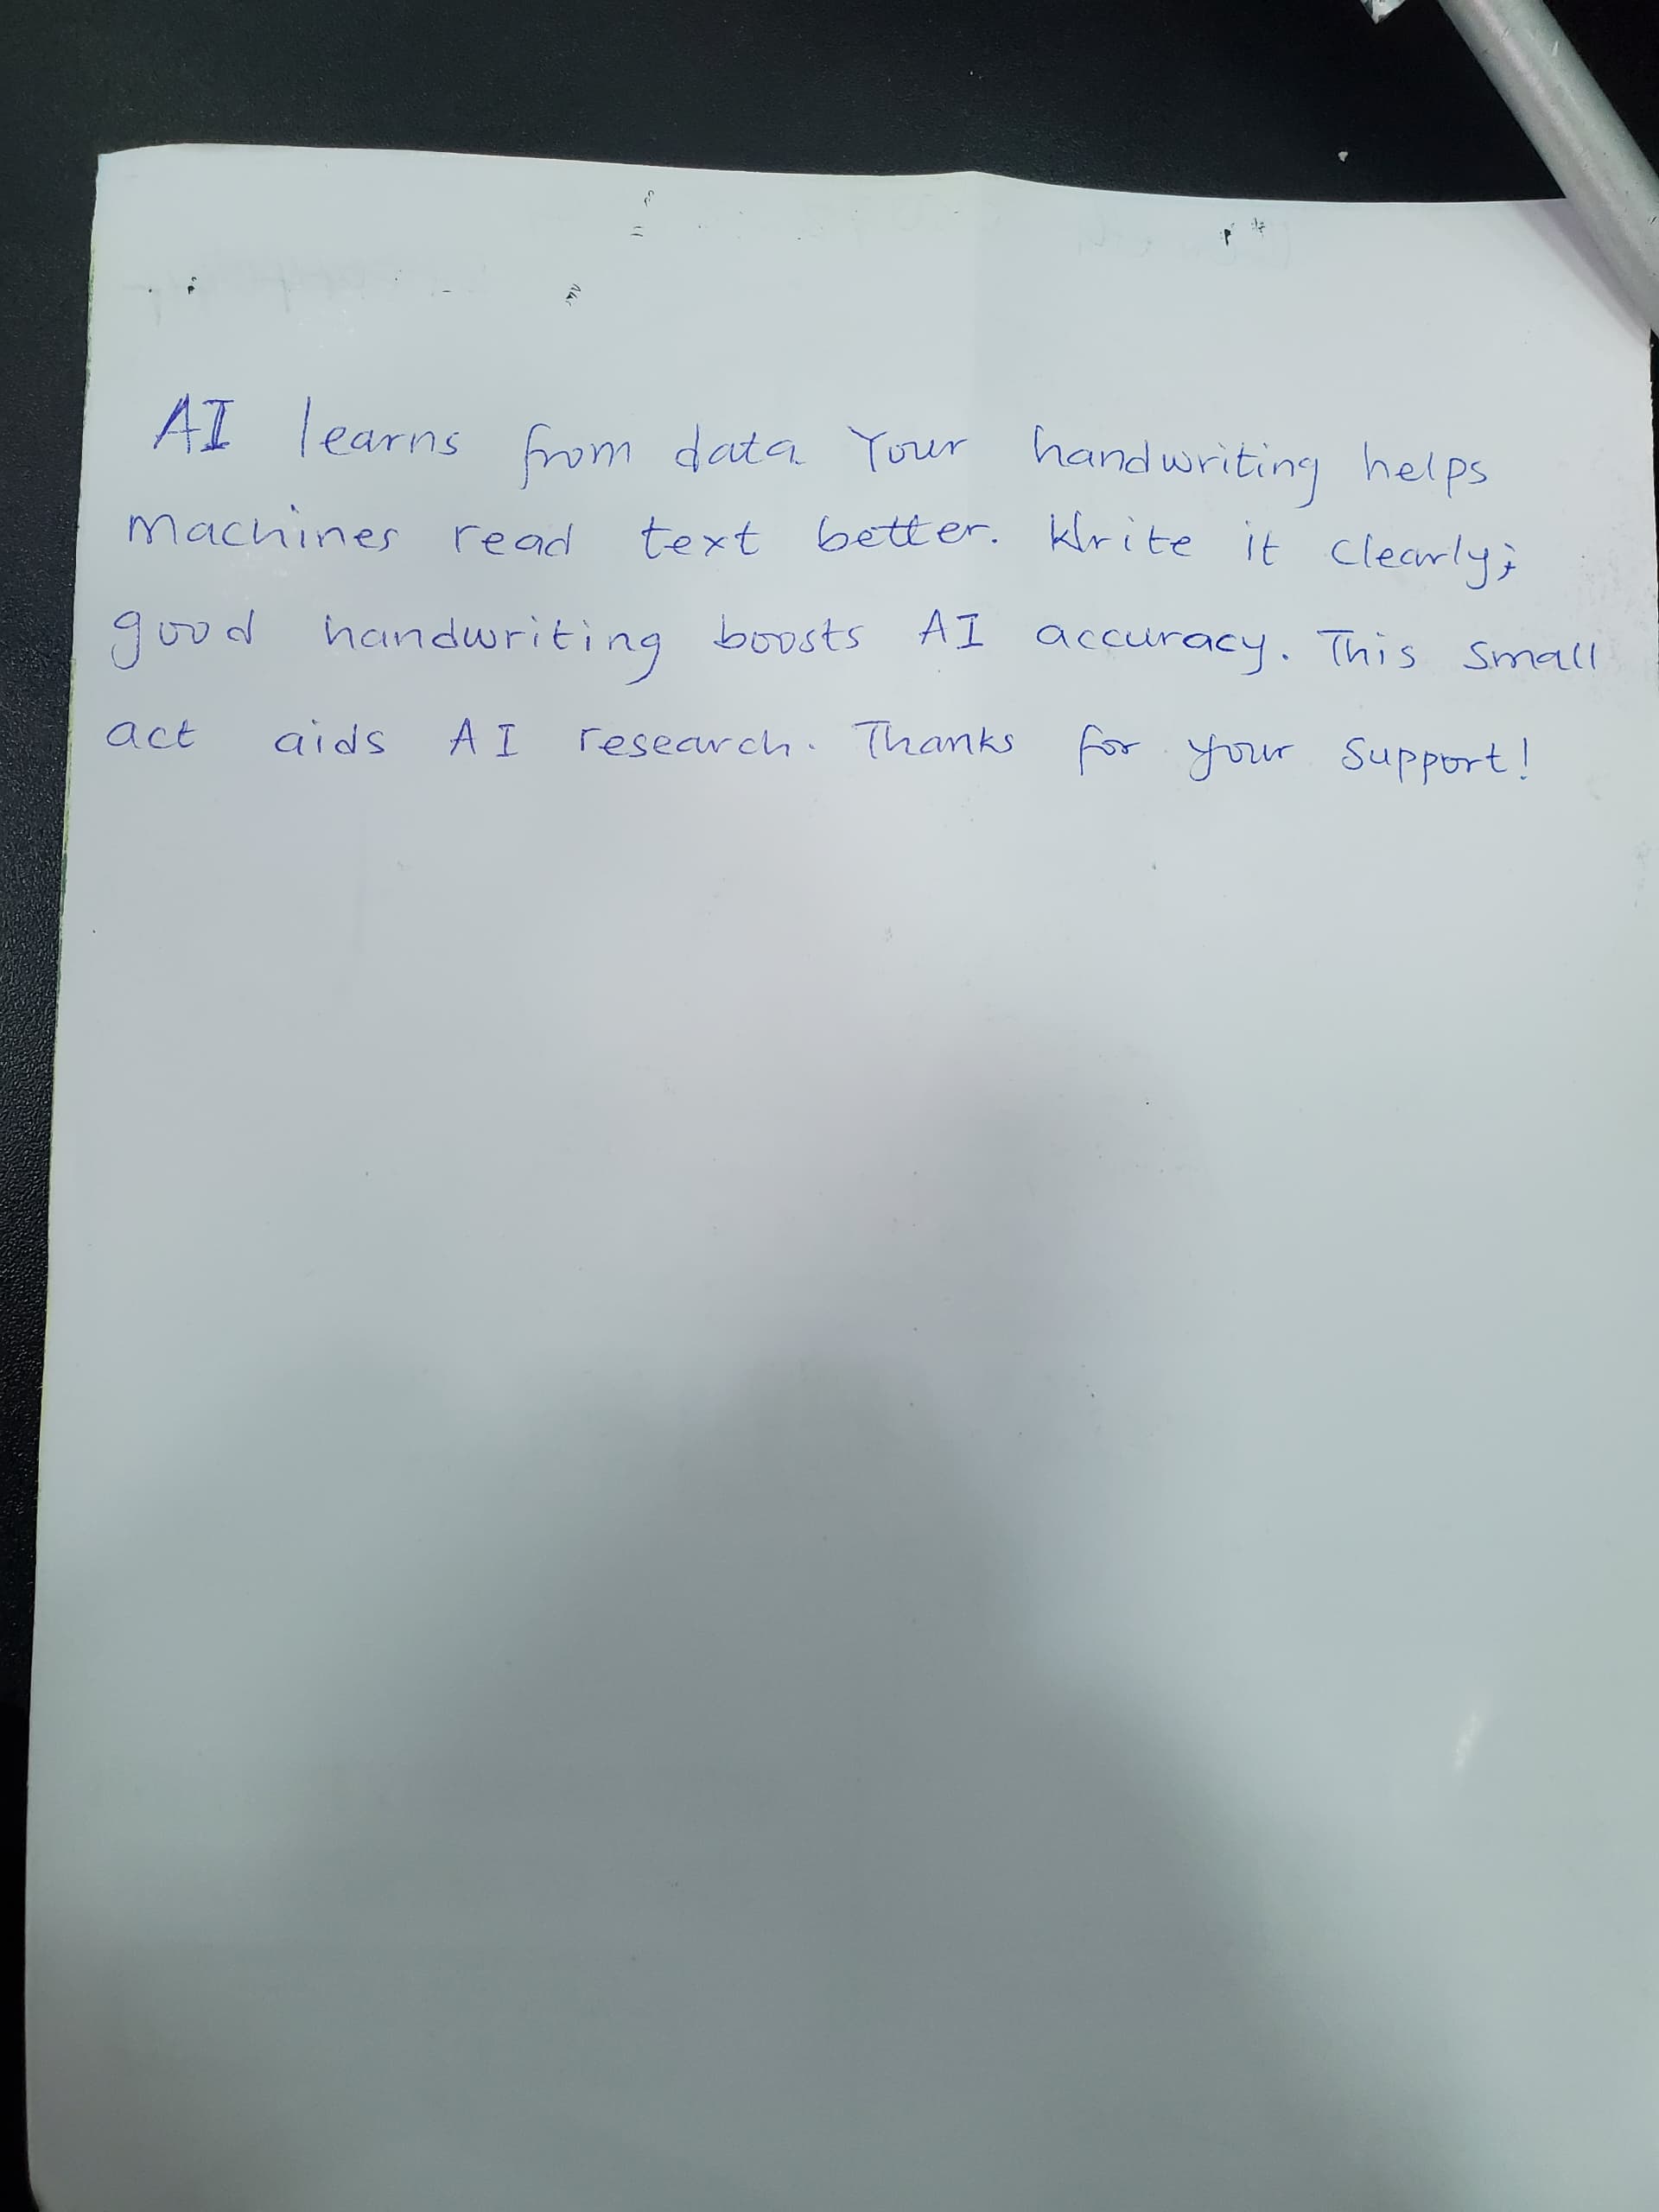 AI learns from data Your handwriting helps
machines read text better. Write it clearly;
good handwriting boosts AI accuracy. This small
act aids AI research. Thanks for your support!